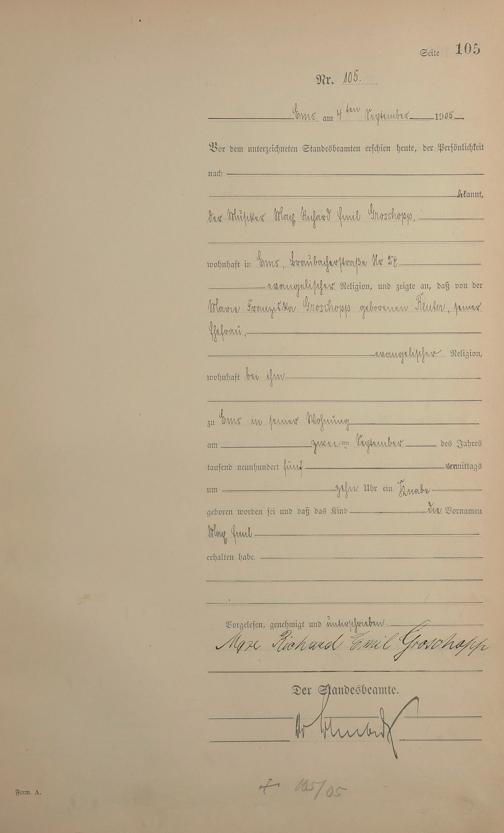 Seite 105
Nr. 105.
Ems am 4ten September 1905
Vor dem unterzeichneten Standesbeamten erschien heute, der Persönlichkeit
nach
bekannt,
der Musiker Max Richard Emil Groschopp,
wohnhaft in Ems, Braubacherstraße Nr 54
evangelischer Religion, und zeigte an, daß von der
Marie Franziska Groschopp geborenen Reuter, seiner
Ehefrau,
evangelischer Religion,
wohnhaft bei ihm
zu Ems in seiner Wohnung
am zweiten September des Jahres
tausend neunhundert fünf vormittags
um zehn Uhr ein Knabe
geboren worden sei und daß das Kind die Vornamen
Max Emil
erhalten habe.
Vorgelesen, genehmigt und unterschrieben
Max Richard Emil Groschopp
Der Standesbeamte.
Form. A.
105/05